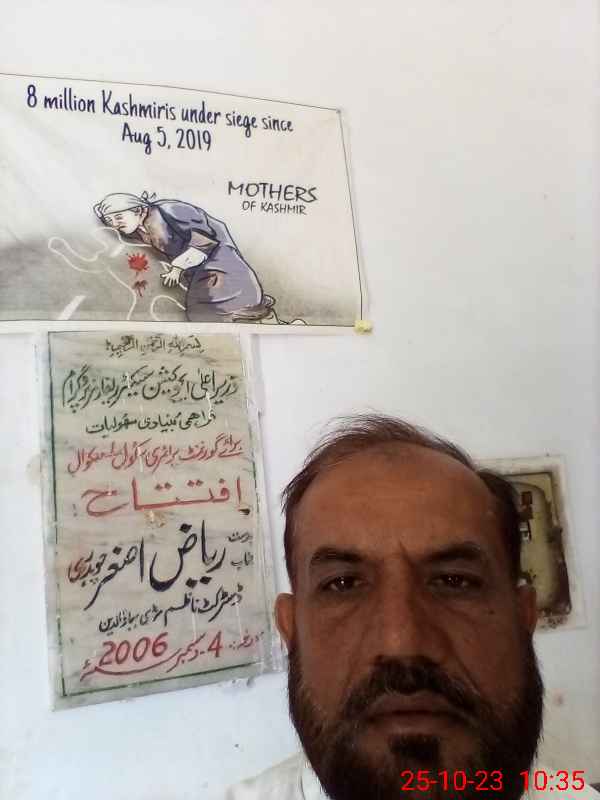 8 million Kashmiris under siege since
Aug 5, 2019
MOTHERS
OF KASHMIR
بسم اللہ الرحمن الرحیم
وزیر اعلیٰ ایجوکیشن سیکٹر ریفارمز پروگرام
فراہمی بنیادی سہولیات
برائے گورنمنٹ پرائمری سکول
افتتاح
بدست
جناب
ریاض اصغر چوہدری
ڈسٹرکٹ ناظم منڈی بہاؤالدین
مورخہ: 4 دسمبر 2006ء
25-10-23 10:35